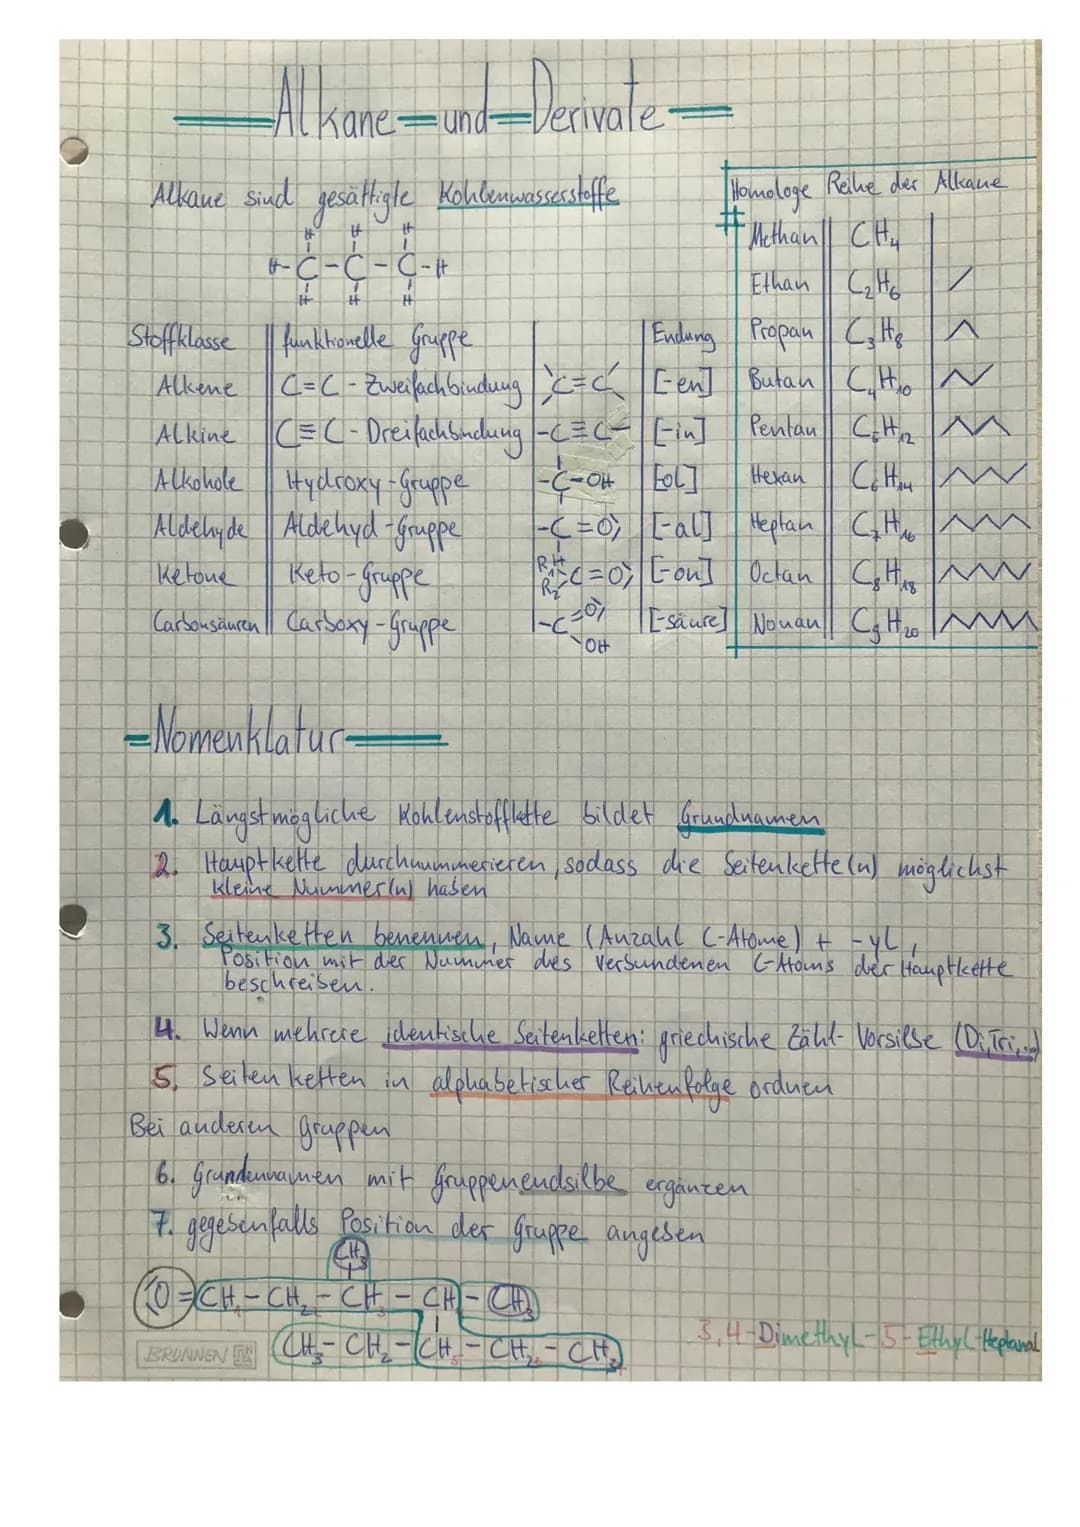 Alkane und Derivate
Alkane sind gesättigte Kohlenwasserstoffe
H H H
H-C-C-C-H
H H H
Homologe Reihe der Alkane
Methan CH4
Ethan C2H6
Propan C3H8
Butan C4H10
Pentan C5H12
Hexan C6H14
Heptan C7H16
Octan C8H18
Nonan C9H20
Stoffklasse funktionelle Gruppe Endung
Alkene C=C - Zweifachbindung C=C [-en]
Alkine C≡C - Dreifachbindung -C≡C- [-in]
Alkohole Hydroxy-Gruppe -C-OH [-ol]
Aldehyde Aldehyd-Gruppe -C=O H [-al]
Ketone Keto-Gruppe R1 R2 C=O [-on]
Carbonsäuren Carboxy-Gruppe -C=O OH [-säure]
Nomenklatur
1. Längstmögliche Kohlenstoffkette bildet Grundnamen
2. Hauptkette durchnummerieren, sodass die Seitenkette(n) möglichst
kleine Nummer(n) haben
3. Seitenketten benennen, Name (Anzahl C-Atome) + -yl,
Position mit der Nummer des verbundenen C-Atoms der Hauptkette
beschreiben.
4. Wenn mehrere identische Seitenketten: griechische Zähl-Vorsilbe (Di,Tri,...)
5. Seitenketten in alphabetischer Reihenfolge ordnen
Bei anderen Gruppen
6. Grundennamen mit Gruppenendsilbe ergänzen
7. gegebenfalls Position der Gruppe angeben
CH3
O=CH1-CH2-CH3-CH-CH3
CH3-CH2-CH5-CH2-CH3
3,4-Dimethyl-5-Ethyl-Heptanal
BRUNNEN